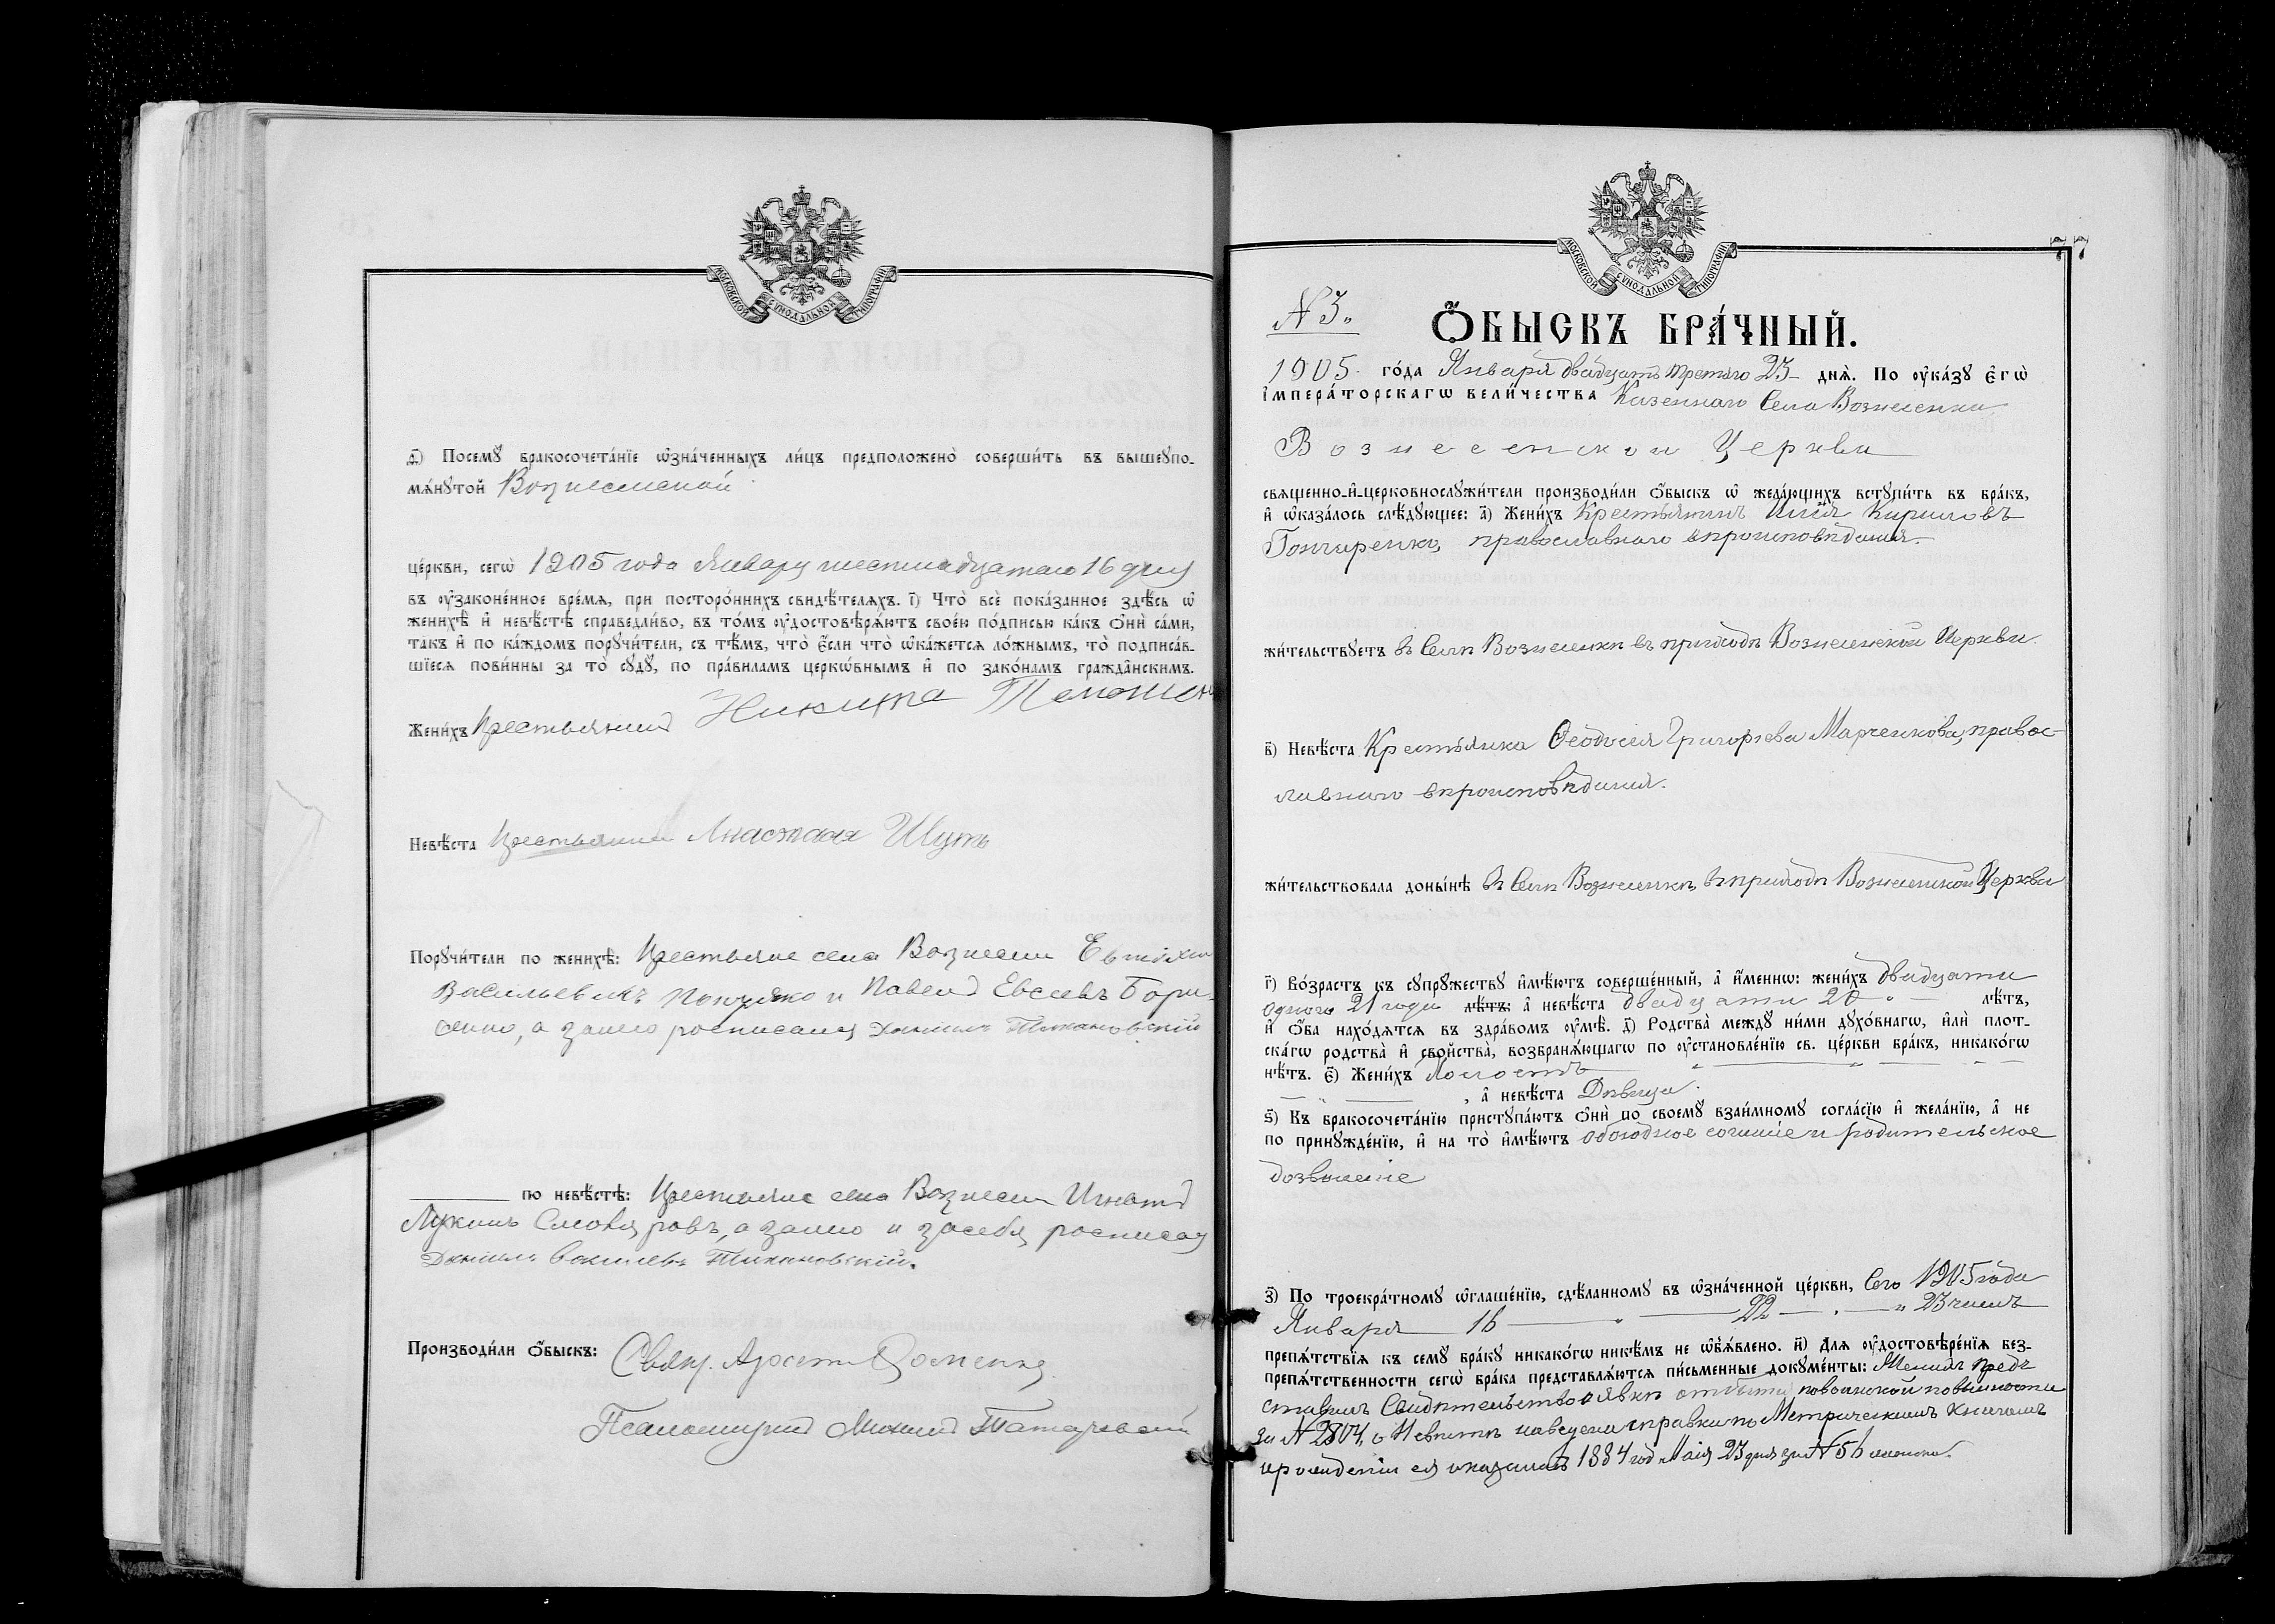 МОСКОВСКОЙ СѴНОДАЛЬНОЙ ТИПОГРАФІИ
ѳ҃) Посемꙋ̀ бракосочета́нїе ѡ҆зна́ченныхъ ли́цъ предположено̀ соверши́ть въ вышеꙋпо-
мѧ́нꙋтой Вознесенской
це́ркви, сегѡ̀ 1905 года Января шестнадцатаго 16 дня
въ ᲂу҆законе́нное вре́мѧ, при посторо́ннихъ свидѣ́телѧхъ. і҃) Что̀ всѐ пока́занное здѣ́сь ѡ҆
женихѣ̀ и҆ невѣ́стѣ справедли́во, въ то́мъ ᲂу҆достовѣрѧ́ютъ свое́ю по́дписью ка́къ ѻ҆нѝ са́ми,
та́къ и҆ по ка́ждомъ порꙋчи́тели, съ тѣ́мъ, что̀ є҆́сли что̀ ѡ҆ка́жетсѧ ло́жнымъ, то̀ подписа́в-
шїесѧ пови́нны за то̀ сꙋдꙋ̀, по пра́виламъ церко́внымъ и҆ по зако́намъ гражда̂нскимъ.
Жени́хъ Крестьянинъ Никита
Невѣ́ста Анастасия Шуть
Порꙋчи́тели по женихѣ̀: Крестьяне села Вознесенки
Васильевичъ и Павелъ Евсеевъ Бори-
сенко, а за него росписался Даниилъ Тихановскій
по невѣ́стѣ: Крестьяне села Вознесенки Игнатъ
Лукинъ а за него и за себя росписался
Даниилъ Васильевъ Тихановскій.
Производи́ли ѻ҆́быскъ: Свящ.
Псаломщикъ Михаилъ
МОСКОВСКОЙ СѴНОДАЛЬНОЙ ТИПОГРАФІИ
77
N 3.
Ѻ҆́БЫСКЪ БРА́ЧНЫЙ.
1905 го́да Января двадцать третяго 23 днѧ̀. По ᲂу҆ка́зꙋ є҆гѡ̀
і҆мпера́торскагѡ вели́чества Казеннаго Села Вознесенки
Вознесенской Церкви
свѧще́нно-и҆-церковнослꙋжи́тели производи́ли ѻ҆́быскъ ѡ҆ жела́ющихъ встꙋпи́ть въ бра́къ,
и҆ ѡ҆каза́лось слѣ́дꙋющее: а҃) Жени́хъ Крестьянинъ Илія Кириловъ
Гончаренко, православнаго вѣроисповѣданія.
жи́тельствꙋетъ въ Селѣ Вознесенки въ приходѣ Вознесенской Церкви.
в҃) Невѣ́ста Крестьянка Ѳеодосія Григорьева Марченкова, правос-
лавнаго вѣроисповѣданія.
жи́тельствовала доны́нѣ въ Селѣ Вознесенкѣ въ приходѣ Вознесенской Церкви
г҃) Во́зрастъ къ сꙋпрꙋ́жествꙋ и҆мѣ́ютъ соверше́нный, а҆ и҆́меннѡ: жени́хъ двадцати
одного 21 года лѣ́тъ: а҆ невѣ́ста двадцати 20 лѣ́тъ,
и҆ ѻ҆́ба нахо́дѧтсѧ въ здра́вомъ ᲂу҆мѣ̀. д҃) Родства̀ междꙋ̀ ни́ми дꙋхо́внагѡ, и҆лѝ плот-
ска́гѡ родства̀ и҆ свойства̀, возбранѧ́ющагѡ по ᲂу҆становле́нїю св. це́ркви бра́къ, никако́гѡ
нѣ́тъ. є҃) Жени́хъ холостъ
, а҆ невѣ́ста Дѣвица.
ѕ҃) Къ бракосочета́нїю пристꙋпа́ютъ ѻ҆нѝ по своемꙋ̀ взаи́мномꙋ согла́сїю и҆ жела́нїю, а҆ не
по принꙋжде́нїю, и҆ на то̀ и҆мѣ́ютъ обоюдное согласіе и родительское
дозволеніе
з҃) По троекра́тномꙋ ѡ҆глаше́нїю, сдѣ́ланномꙋ въ ѡ҆зна́ченной це́ркви, Сего 1905 года
Января 16 22 23 чиселъ
препѧ́тствїѧ къ семꙋ̀ бра́кꙋ никако́гѡ никѣ́мъ не ѡ҆б̾ѧ́влено. и҃) Длѧ ᲂу҆достовѣре́нїѧ без-
препѧ́тственности сегѡ̀ бра́ка представлѧ́ютсѧ пи́сьменные докꙋме́нты: Женихъ пред-
ставилъ Свидѣтельство о явкѣ повоинской повинности
за N 2804, о Невѣстѣ наведена справка по Метрическимъ книгамъ
о рожденіи ея оказалась 1884 год Маія 23 дня за N 56